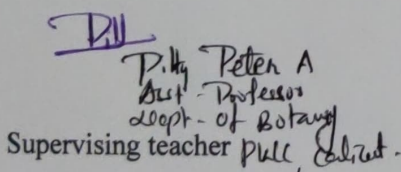 Dilly Peter A
Asst - Professor
Dept - Of Botany
Supervising teacher Calicut.